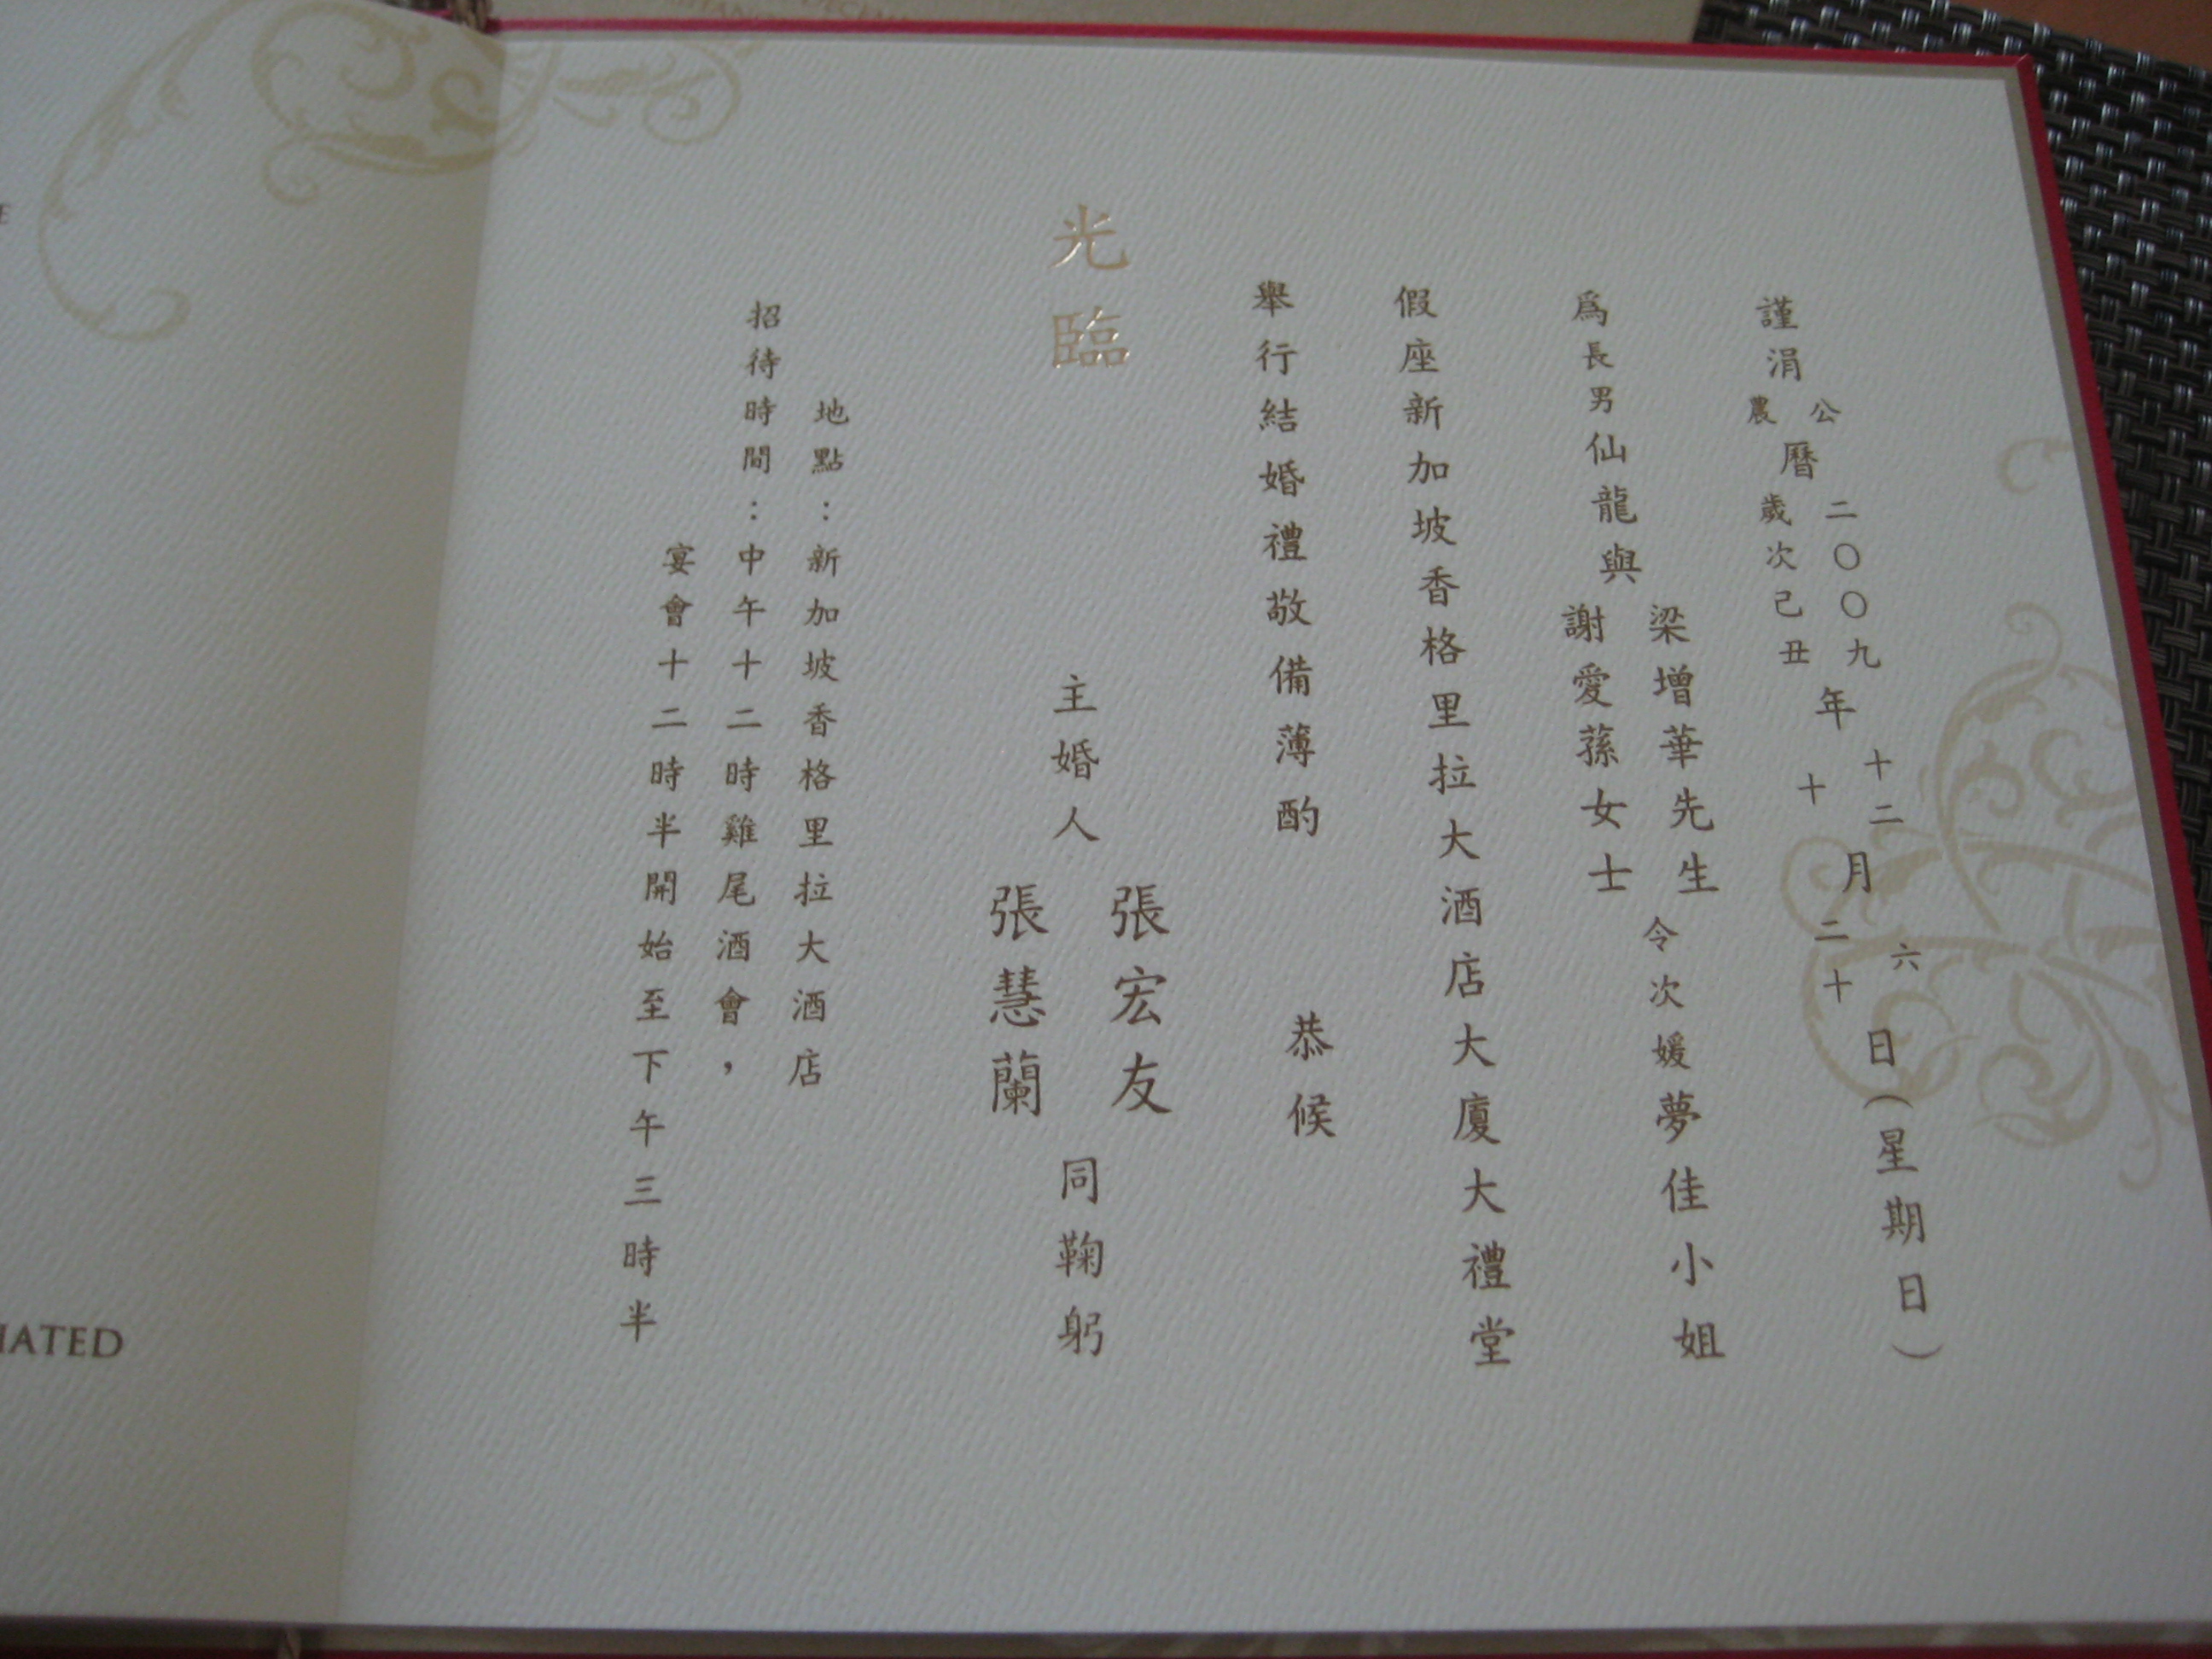 謹涓公曆二〇〇九年十二月六日（星期日）
農曆歲次己丑年十月二十日
爲長男仙龍與梁增華先生令次媛夢佳小姐
謝愛蓀女士
假座新加坡香格里拉大酒店大廈大禮堂
舉行結婚禮敬備薄酌 恭候
光臨
主婚人 張宏友 同鞠躬
張慧蘭
地點：新加坡香格里拉大酒店
招待時間：中午十二時雞尾酒會，
宴會十二時半開始至下午三時半
IATED